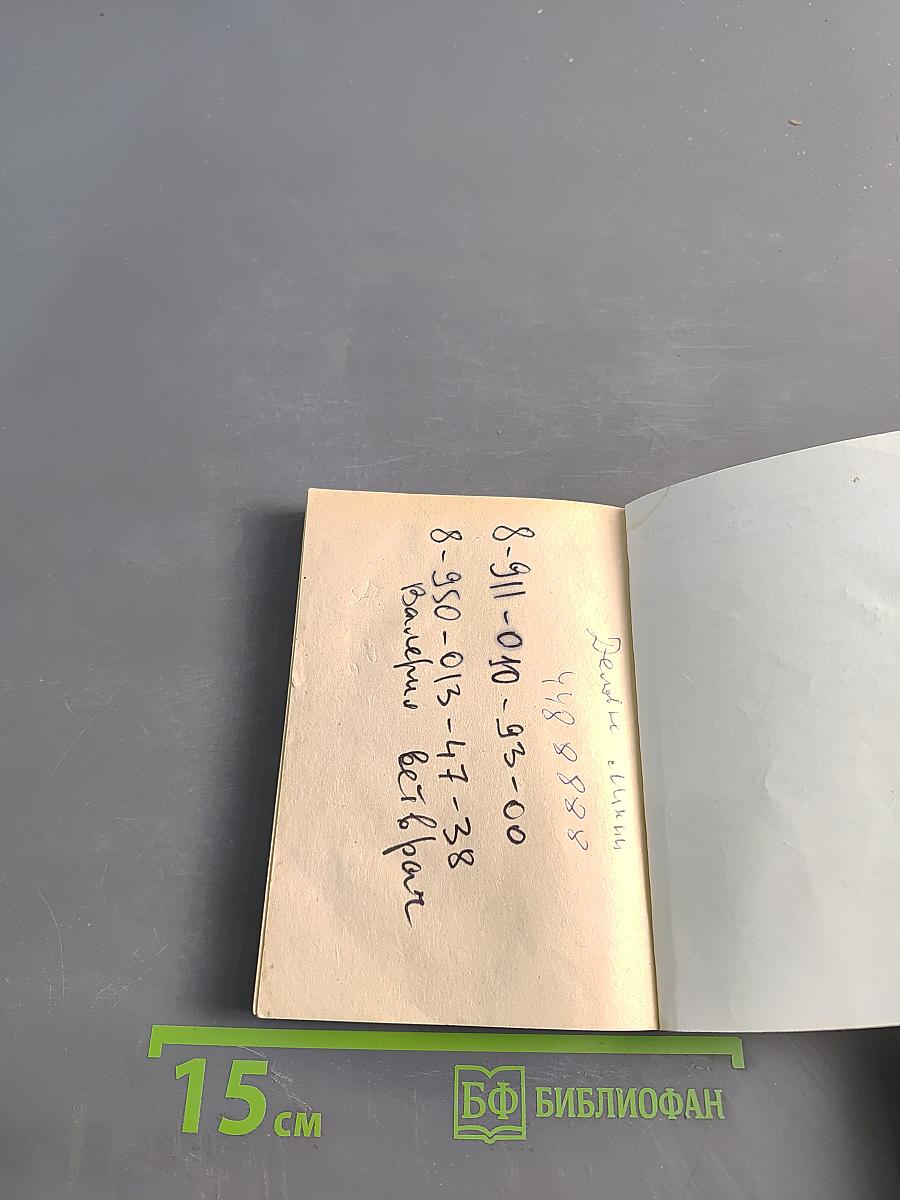 Деловые линии
448 8888
8-911-010-93-00
8-950-013-47-38
Валерия ветврач
15 см
БФ БИБЛИОФАН